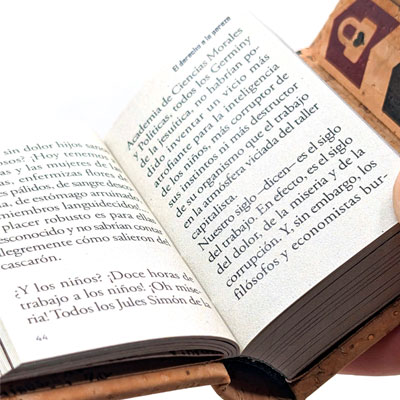 on dolor hijos sanos
osos? ¡Hoy tenemos
as y las mujeres de
enfermizas flores
es pálidos, de sangre desco
de estómago arruinado
miembros languidecidos
placer robusto es para ellas
esconocido y no sabrían contar
alegremente cómo salieron del
cascarón.
¿Y los niños? ¡Doce horas de
trabajo a los niños! ¡Oh mise-
ria! Todos los Jules Simón de la
44
El derecho a la pereza
Academia de Ciencias Morales
y Políticas, todos los Germiny
de la jesuítica, no habrían po-
dido inventar un vicio más
atrofiante para la inteligencia
de los niños, más corruptor de
sus instintos ni más destructor
de su organismo que el trabajo
en la atmósfera viciada del taller
Nuestro siglo —dicen— es el siglo
del trabajo. En efecto, es el siglo
del dolor, de la miseria y de la
corrupción. Y, sin embargo, los
filósofos y economistas bur-